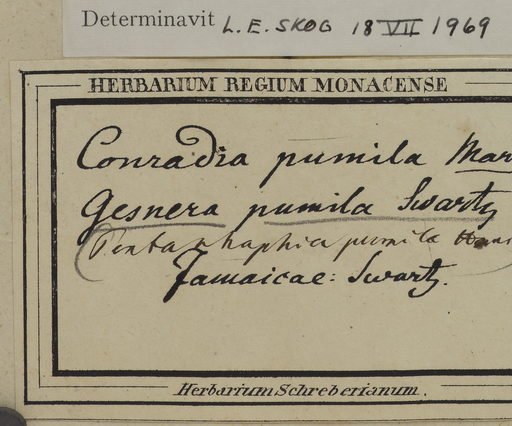 Determinavit L. E. SKOG 18 VII 1969
HERBARIUM REGIUM MONACENSE
Conradia pumila Mar
Gesnera pumila Swartz
Pentarhaphia pumila
Jamaicae: Swartz.
Herbarium Schreberianum.